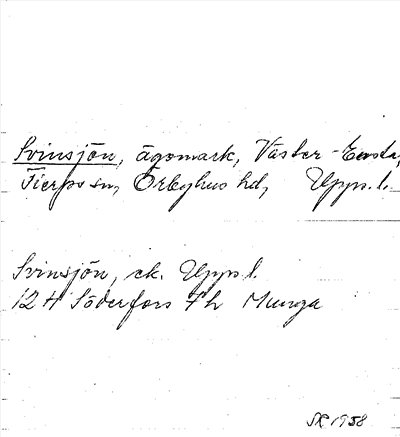 Svinsjön, ägomark, Väster-Ensta,
Tierps sn, Örbyhus hd, Upps.l.
Svinsjön, ek. Upps l.
12 H Söderfors 7 h Munga
1958